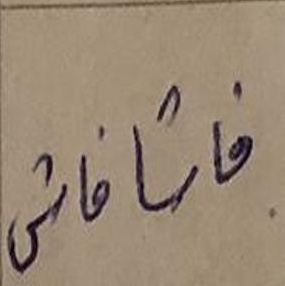 فاشا فاشی